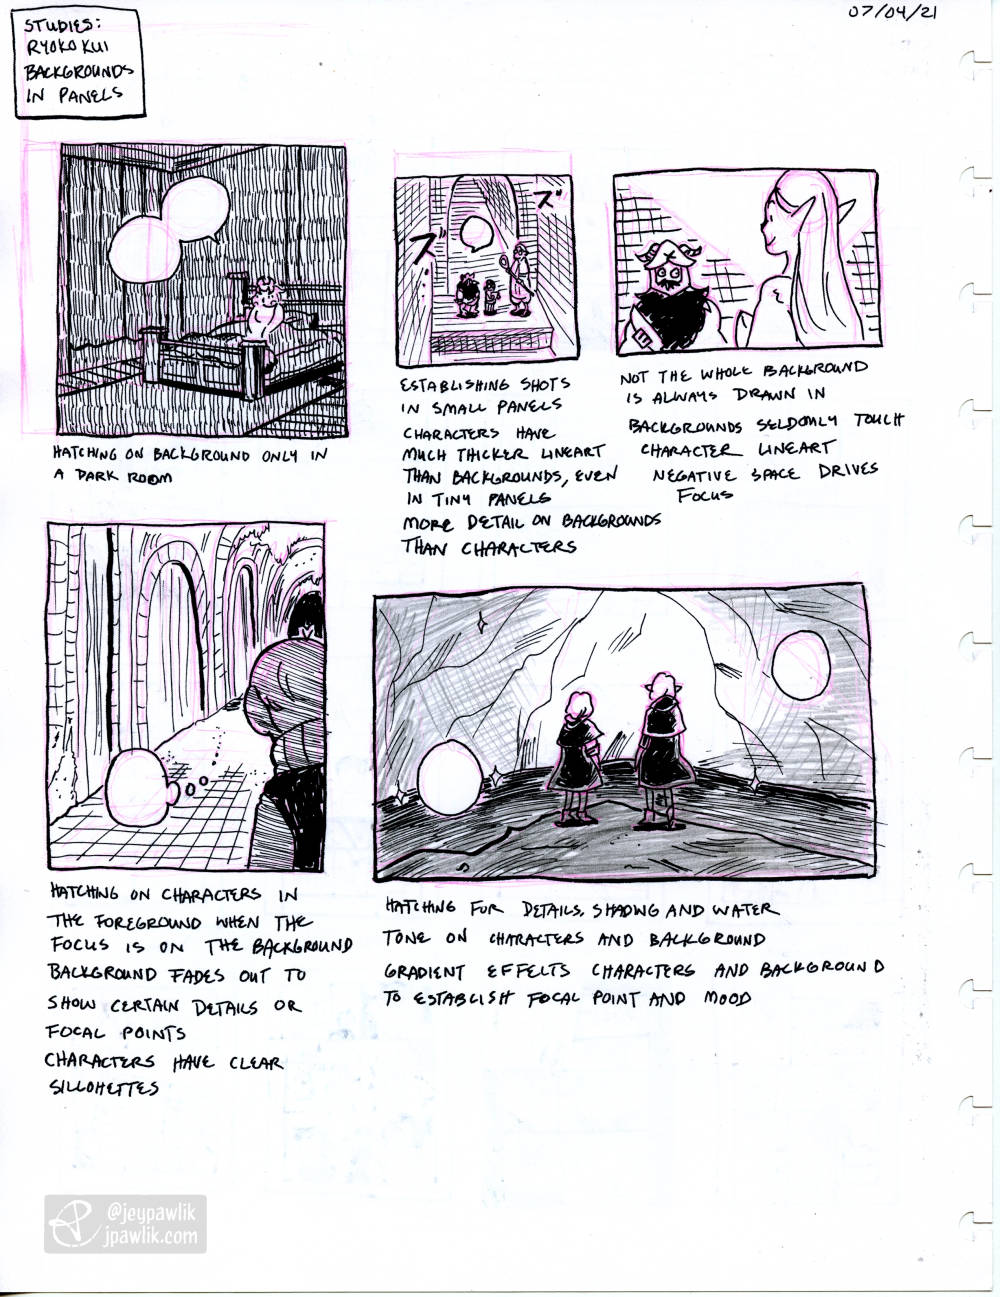 STUDIES:
RYOKO KUI
BACKGROUNDS
IN PANELS
07/04/21
ズ
ズ
HATCHING ON BACKGROUND ONLY IN
A DARK ROOM
ESTABLISHING SHOTS
IN SMALL PANELS
CHARACTERS HAVE
MUCH THICKER LINEART
THAN BACKGROUNDS, EVEN
IN TINY PANELS
MORE DETAIL ON BACKGROUNDS
THAN CHARACTERS
NOT THE WHOLE BACKGROUND
IS ALWAYS DRAWN IN
BACKGROUNDS SELDOMLY TOUCH
CHARACTER LINEART
NEGATIVE SPACE DRIVES
FOCUS
HATCHING ON CHARACTERS IN
THE FOREGROUND WHEN THE
FOCUS IS ON THE BACKGROUND
BACKGROUND FADES OUT TO
SHOW CERTAIN DETAILS OR
FOCAL POINTS
CHARACTERS HAVE CLEAR
SILLOHETTES
HATCHING FUR DETAILS, SHADING AND WATER
TONE ON CHARACTERS AND BACKGROUND
GRADIENT EFFELTS CHARACTERS AND BACKGROUND
TO ESTABLISH FOCAL POINT AND MOOD
@jeypawlik
jpawlik.com